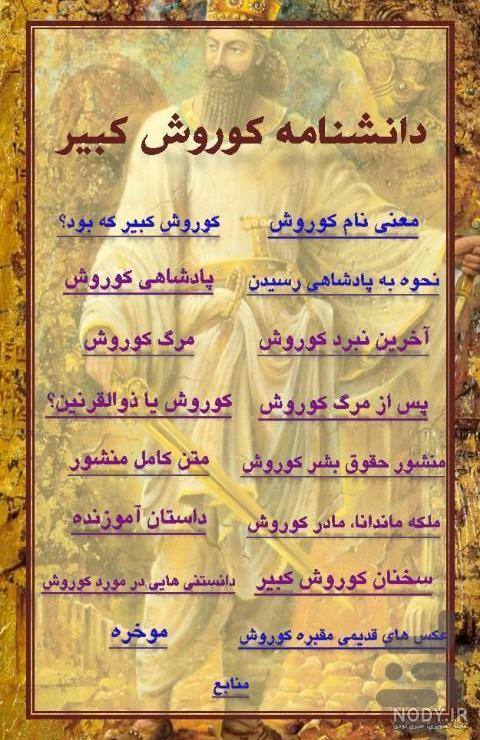 دانشنامه کوروش کبیر
معنی نام کوروش
کوروش کبیر که بود؟
نحوه به پادشاهی رسیدن
پادشاهی کوروش
آخرین نبرد کوروش
مرگ کوروش
پس از مرگ کوروش
کوروش یا ذوالقرنین؟
منشور حقوق بشر کوروش
متن کامل منشور
ملکه ماندانا، مادر کوروش
داستان آموزنده
سخنان کوروش کبیر
دانستنی هایی در مورد کوروش
عکس های قدیمی مقبره کوروش
موخره
منابع
NODY.IR